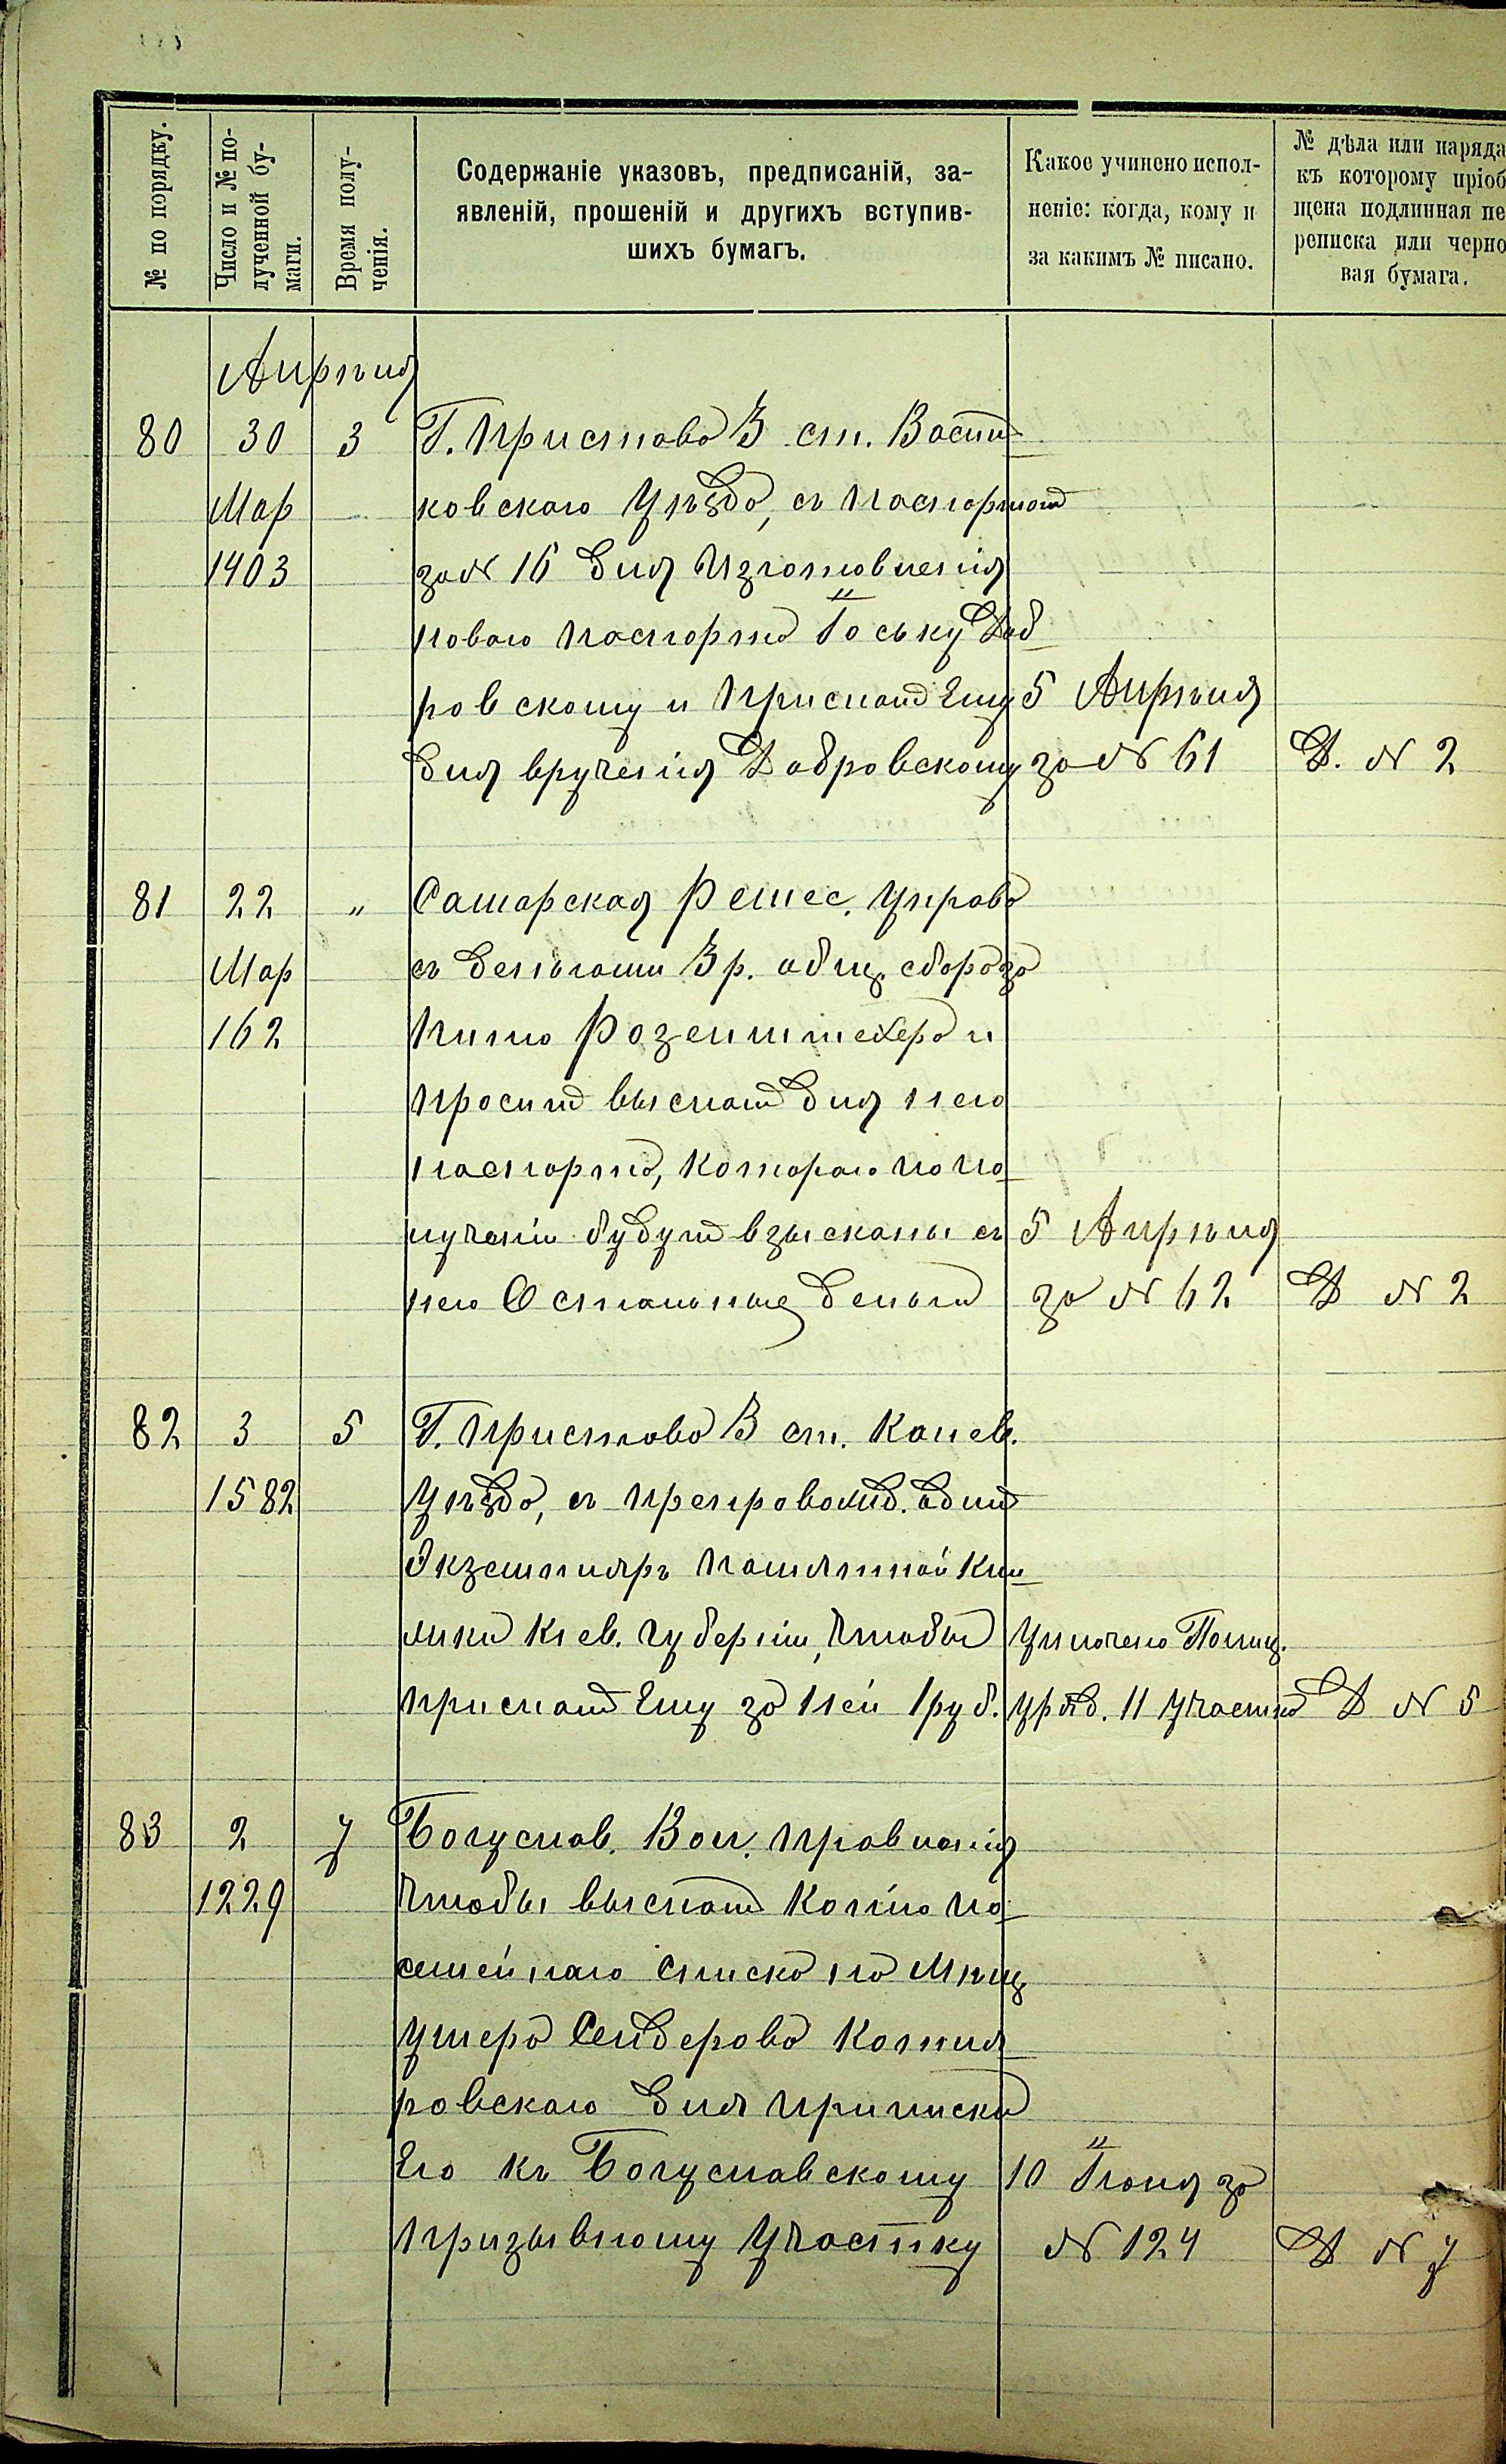 № по порядку.
Число и № по-
лученной бу-
маги.
Время полу-
ченія.
Содержаніе указовъ, предписаній, за-
явленій, прошеній и другихъ вступив-
шихъ бумагъ.
Какое учинено испол-
неніе: когда, кому и
за какимъ № писано.
№ дѣла или наряда
къ которому пріоб
щена подлинная пе
реписка или черно
вая бумага.
Апрѣля
80 30 3 Г. Пристава 3 ст.
Мар ковскаго Уѣзда, съ паспортомъ
1403 за № 16 для изготовленія
новаго паспорта Іоську Доб
ровскому и прислать ему 5 Апрѣля
для врученія Добровскому за № 61 Д. № 2
81 22 " Самарская Ремес. Управа
Мар съ деньгами 3 р. общ. сбора за
162 Розенштехера и
проситъ выслать для него
паспорта, котораго по по
лученіи будутъ взысканы съ 5 Апрѣля
него Остальные деньги за № 62 Д № 2
82 3 5 Г. Пристава 3 ст. Канев.
1582 Уѣзда, съ препровожд. одинъ
Экземпляръ памятной Кни
жки Кіев. губерніи, чтобы Уплочено Полиц.
прислать Ему за ней 1 руб. Уряд. 11 Участка Д № 5
83 2 7 Богуслав. Вол. правленія
1229 чтобы выслать копію по
семейнаго списка на Мѣщ
Ушера Сендерова
ровскаго для приписки
Его къ Богуславскому 10 Іюня за
призывному Участку № 124 Д № 7